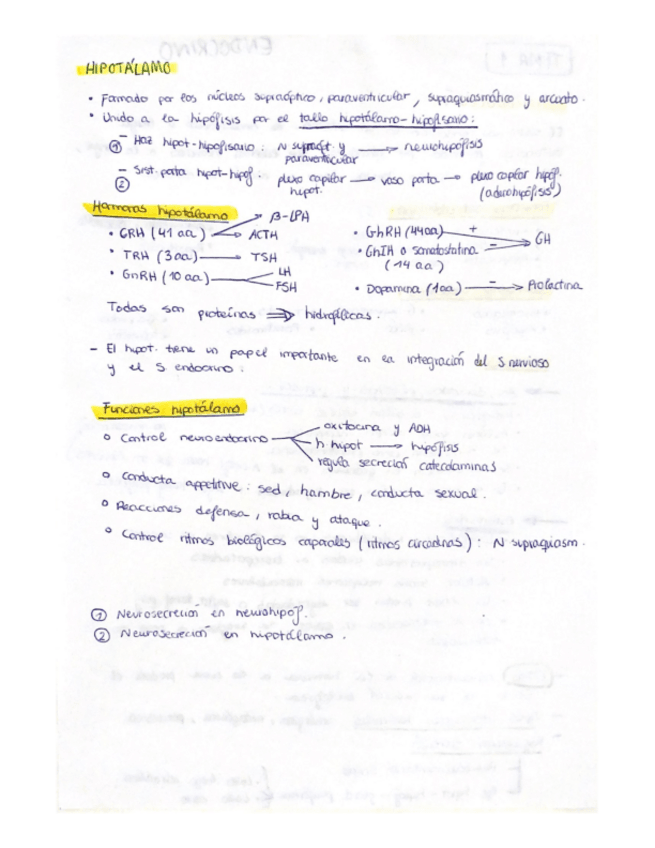 HIPOTÁLAMO
• Formado por los núcleos supraóptico, paraventricular, supraquiasmático y arcuato.
• Unido a la hipófisis por el tallo hipotálamo-hipofisario:
① - Haz hipot-hipofisario: N supraópt. y paraventricular → neurohipófisis
② - Sist. porta hipot-hipof: plexo capilar hipot. → vaso porta → plexo capilar hipof. (adenohipófisis)
Hormonas hipotálamo
• CRH (41 aa) → β-LPH
ACTH
• TRH (3aa) → TSH
• GnRH (10 aa) LH
FSH
• GhRH (44aa) + → GH
• GhIH o somatostatina - (14 aa)
• Dopamina (1aa) - → Prolactina
Todas son proteínas ⇒ hidrofílicas.
- El hipot. tiene un papel importante en la integración del S nervioso
y el S endocrino.
Funciones hipotálamo
o Control neuroendocrino
oxitocina y ADH
h hipot → hipófisis
regula secreción catecolaminas
o Conducta appetitive: sed, hambre, conducta sexual.
o Reacciones defensa, rabia y ataque.
o Control ritmos biológicos corporales (ritmos circadinas): N supraquiasm.
① Neurosecreción en neurohipóf.
② Neurosecreción en hipotálamo.